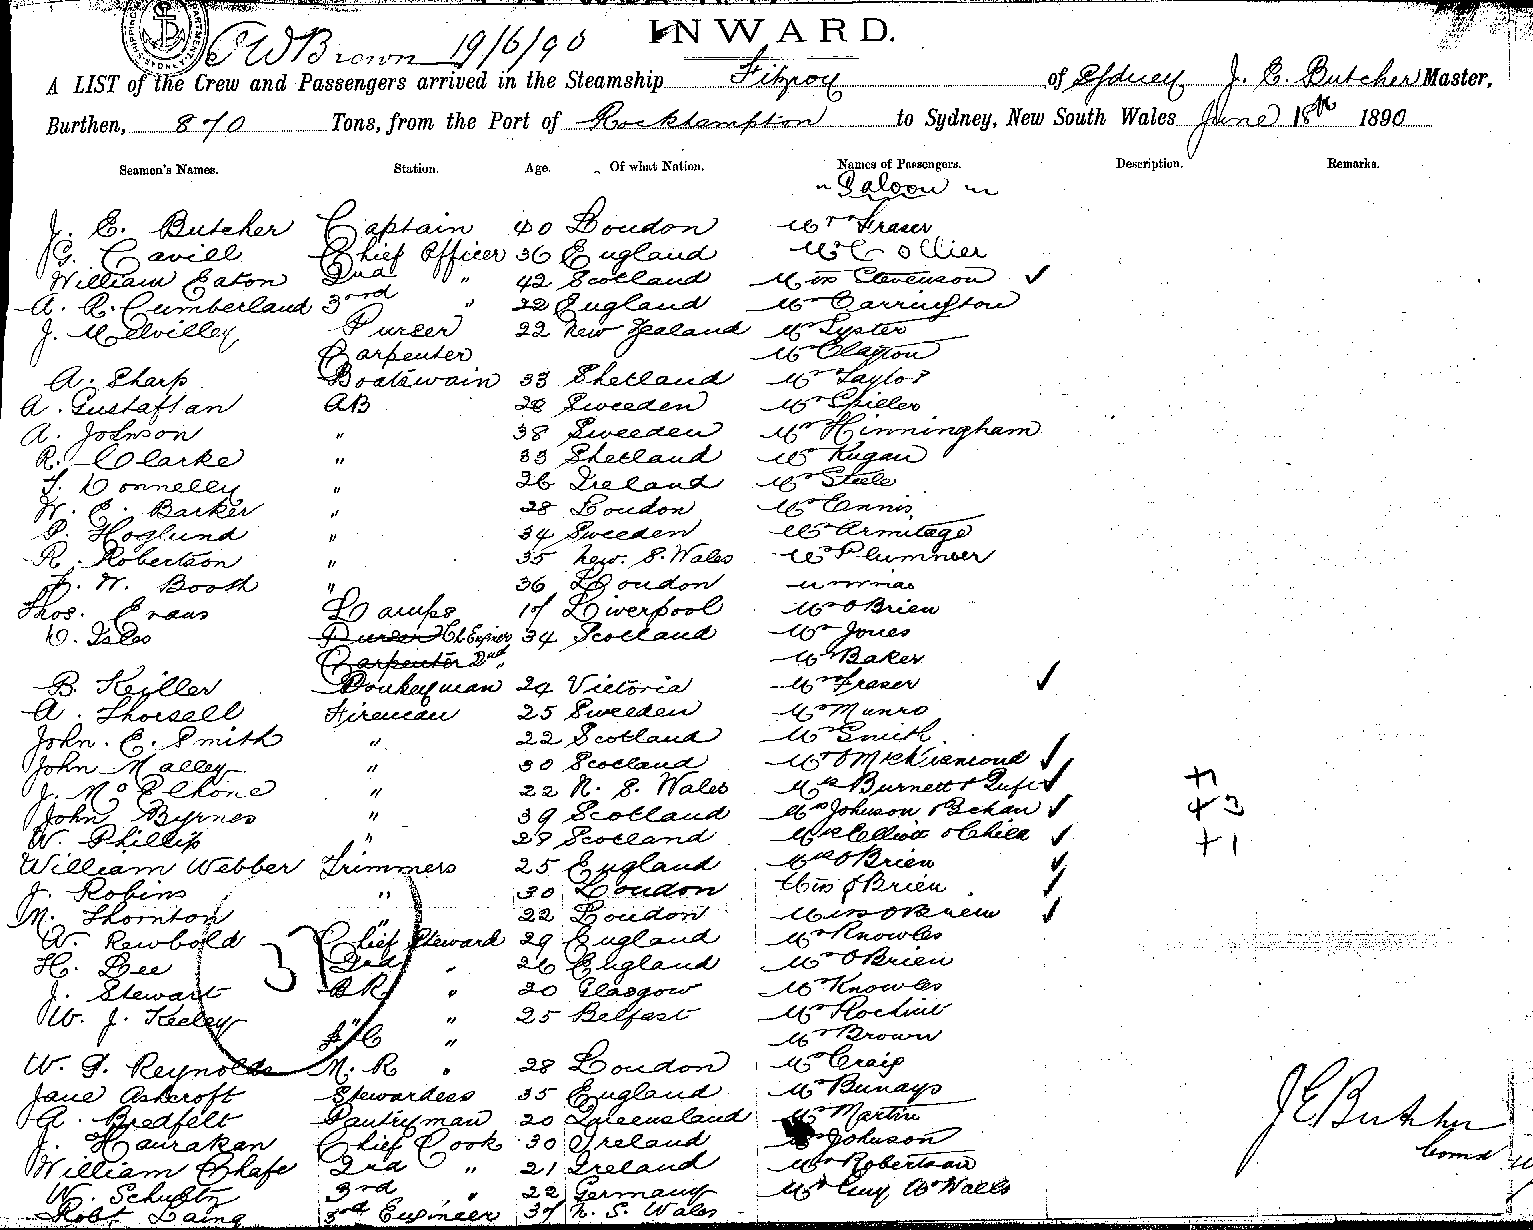 INWARD.
J W Brown 19/6/90
A LIST of the Crew and Passengers arrived in the Steamship Fitzroy of Sydney J. E. Butcher Master,
Burthen, 870 Tons, from the Port of Rockhampton to Sydney, New South Wales June 18th 1890
Seamen's Names. Station. Age. Of what Nation. Names of Passengers. Description. Remarks.
" Saloon "
J. E. Butcher Captain 40 London Mr Fraser
G. Cavill Chief Officer 36 England Mr Collier
William Eaton 2nd " 42 Scotland Miss Stevenson ✓
A. R. Cumberland 3rd " 22 England Mr Carrington
J. Melvilley Purser 22 New Zealand Mr Lyster
Carpenter Mr Clayton
A. Sharp Boatswain 33 Shetland Mr Taylor
A. Gustafsan AB 28 Sweeden Mr Spiller
A. Johnson " 38 Sweeden Mr Hinningham
R. Clarke " 33 Shetland Mr Rugan
T. Donnelly " 26 Ireland Mr Steele
W. E. Barker " 28 London Mr Ennis
P. Hoglund " 34 Sweeden Mr Armitage
R. Robertson " 35 New. S. Wales Mr Plummer
W. Booth " 36 London
Thos. Evans Lamps 17 Liverpool Mr OBrien
D. Isles Purser Ch Enginer 34 Scotland Mr Jones
Carpenter 2nd " Mr Baker
B. Keiller Donkeyman 24 Victoria Mrs Fraser ✓
A. Thorsell Fireman 25 Sweeden Mr Munro
John. E. Smith " 22 Scotland Mr Smith
John Malley " 30 Scotland ✓
J. McElhone " 22 N. S. Wales Mrs Burnett & ✓
John Byrnes " 39 Scotland Mrs Johnson & Behan ✓
W. Phillip " 29 Scotland Mrs Elliott & Child ✓ +1
William Webber Trimmers 25 England Mrs OBrien ✓
J. Robins " 30 London Miss OBrien ✓
M. Thornton " 22 London Miss OBrien ✓
W. Rewbold Chief Steward 29 England Mr Knowles
37
H. Lee 2nd " 26 England Mr OBrien
J. Stewart BR " 20 Glasgow Mr Knowles
W. J. Keeley " " 25 Belfast Mr
" Mr Brown
W. G. Reynolds M. R " 28 London Mr Craig
Jane Ashcroft Stewardess 35 England Mr Bunays
A. Bredfelt Pantryman 20 Queensland Mr Martin
J. Hanrakan Chief Cook 30 Ireland Johnson
William Chafe 2nd " 21 Ireland Mr Robertson
W. Schultz 3rd " 22 Germany Mr Guy
Robt Laing 3rd Engineer 37 N. S. Wales
J E Butcher